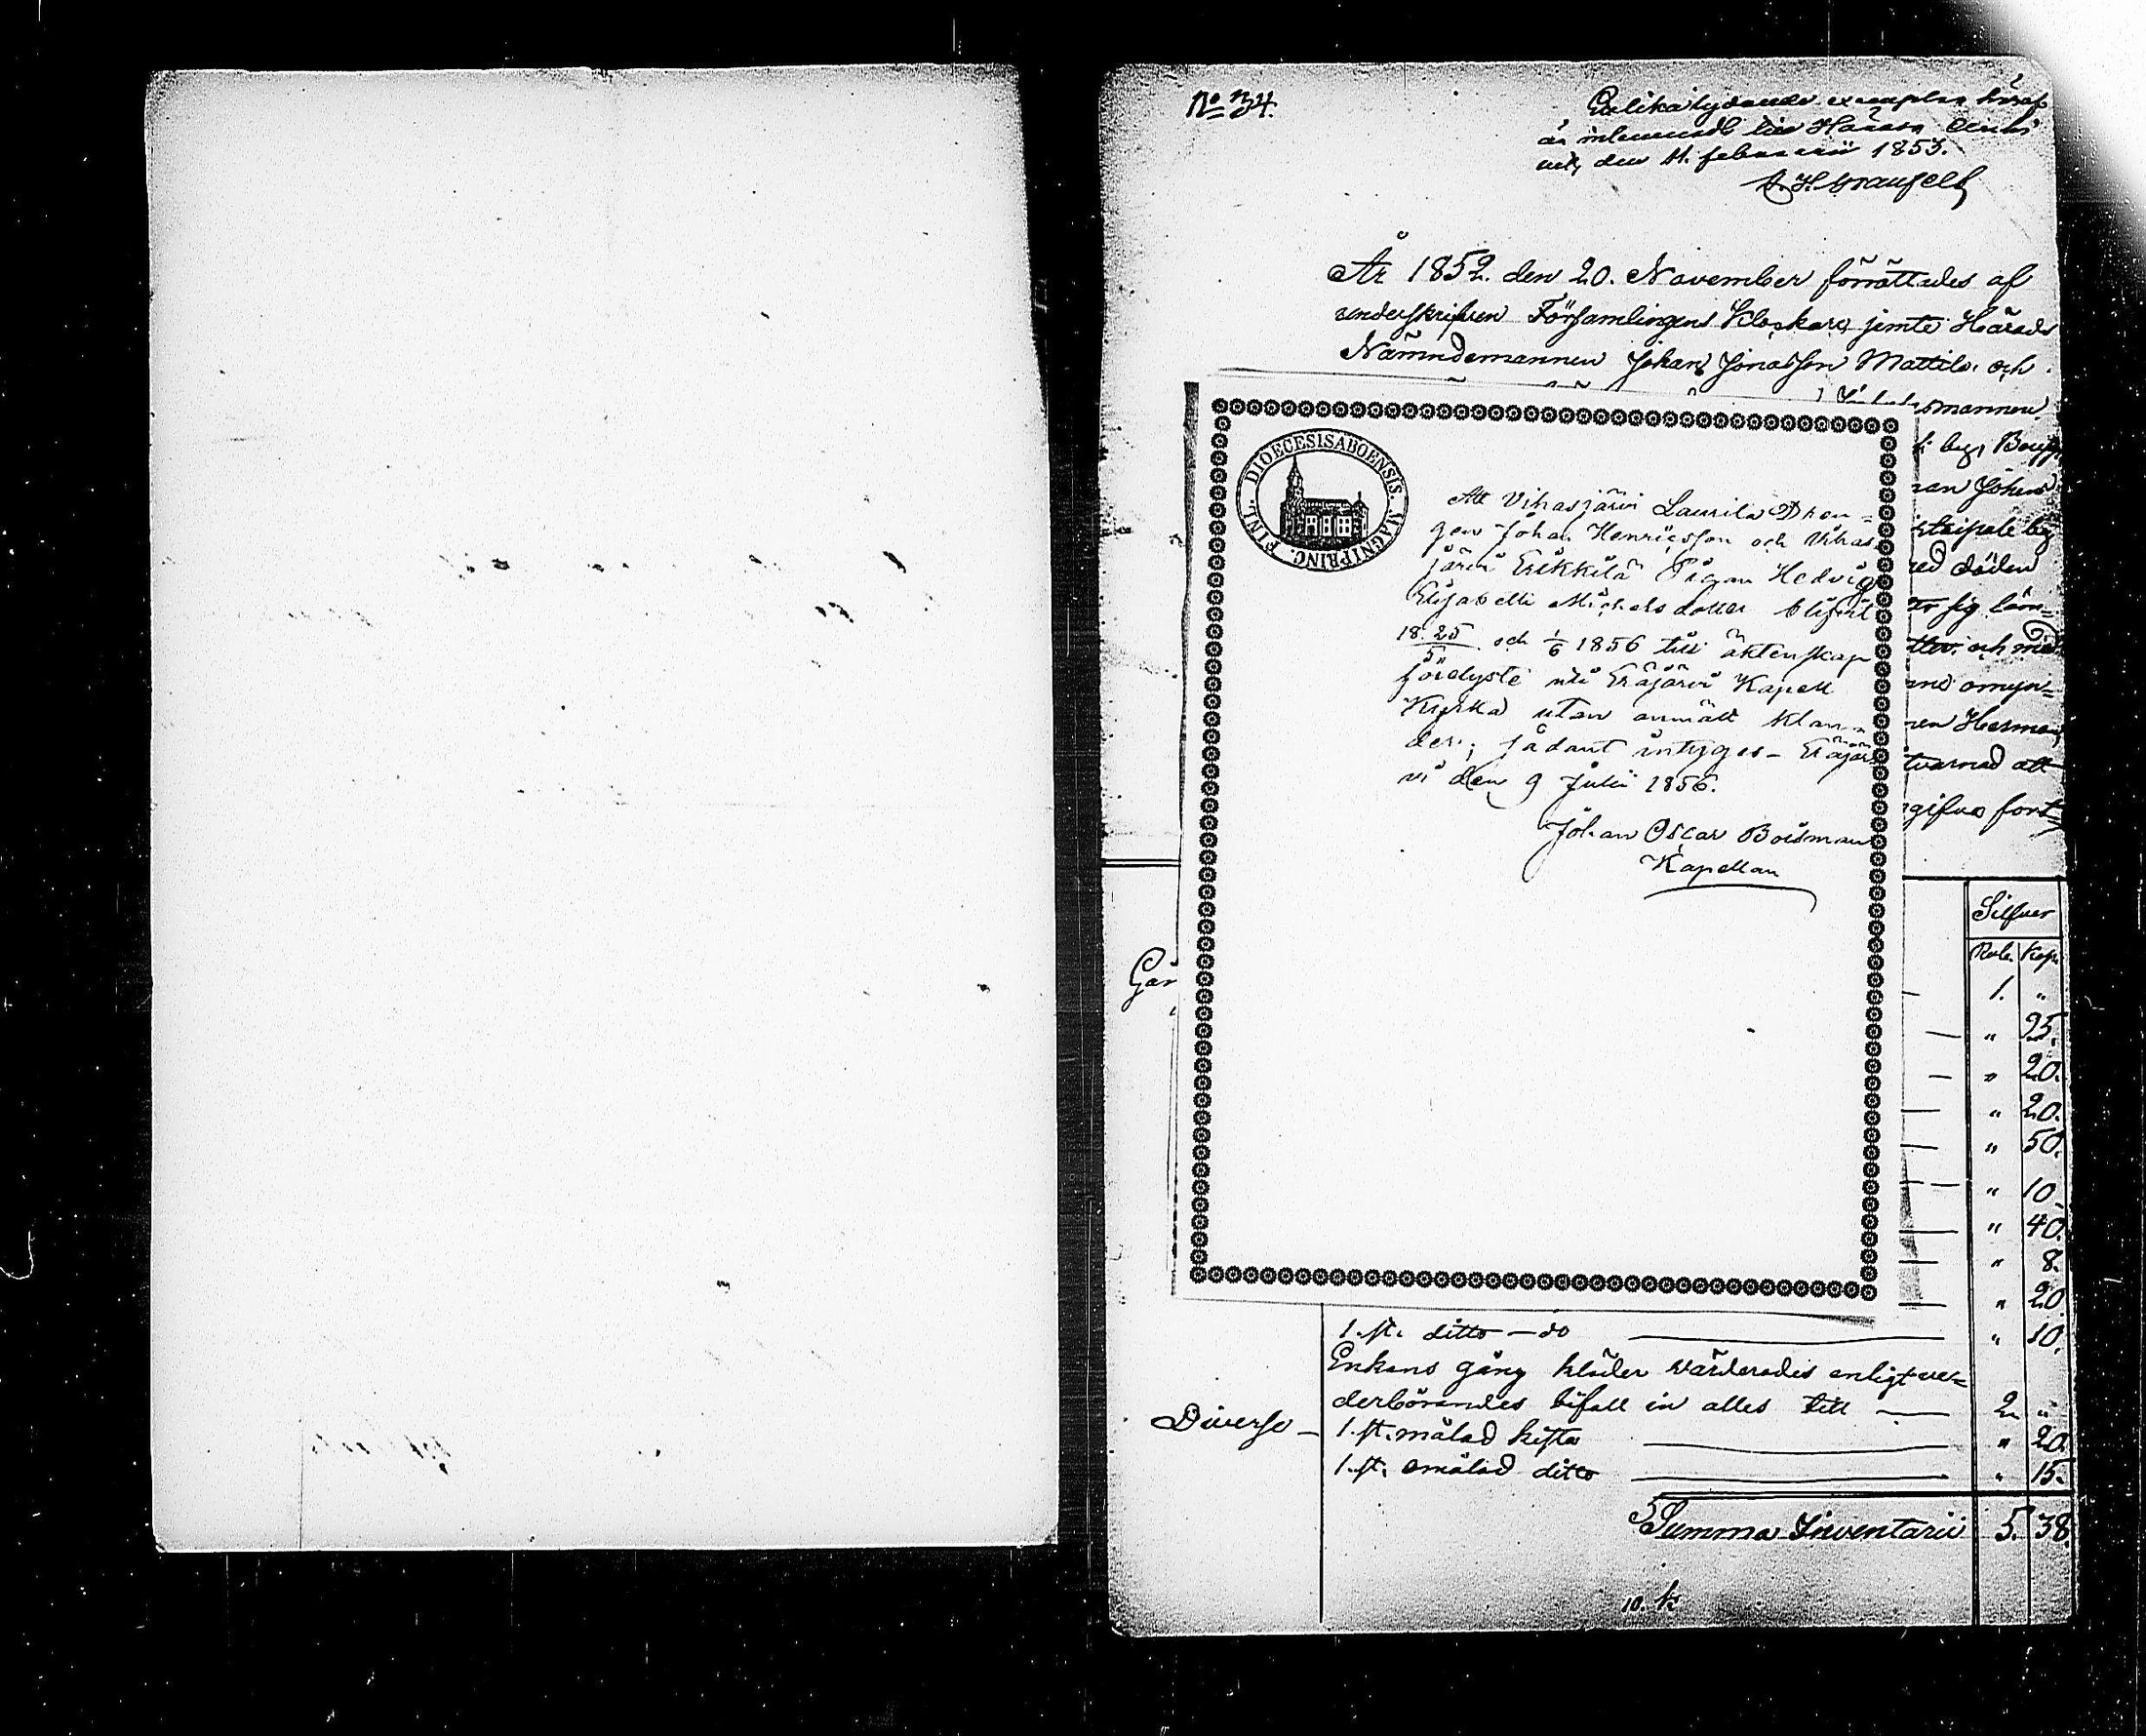 No 34.
Enlika lydande exemplar häraf
är inlemnadt till Härads
den 11. februarii 1853.
År 1852. den 20. November förrättades af
underskrifven Församlingens Klockare jemte Härads
Nämndemannen Johan Jonasson Mattila och
smannen
DIOECESIS ABOENSIS. MAGNI PRINC. FINL.
Att Vihasjärvi Laurila Dren-
gen Johan Henricsson och Vihas
järvi Erikkilä Pigan Hedvig
Elisabeth Michelsdotter blifvit
18. 25/5 och 1/6 1856 till äktenskap
förelyste uti Eräjärvi Kapell
Kyrka utan anmält klan-
der; sådant intygas - Eräjär
vi den 9 Julii 1856.
Johan Oscar Boisman
Kapellan
red döden
ttor och med
nd omyn=
ren Herman
gifva fort
Silfver
Rub. Kop.
Går
1. "
" 25.
" 20.
" 20.
" 50.
" 10
" 40.
" 8.
" 20
1. st. ditto - do " 10.
Enkans gång kläder värderades enligt ve=
derbörandes bifall in alles till 2. "
Diverse - 1. st. målad kista " 20
1. st. omålad ditto " 15.
Summa Inventarii 5. 38.
10. k